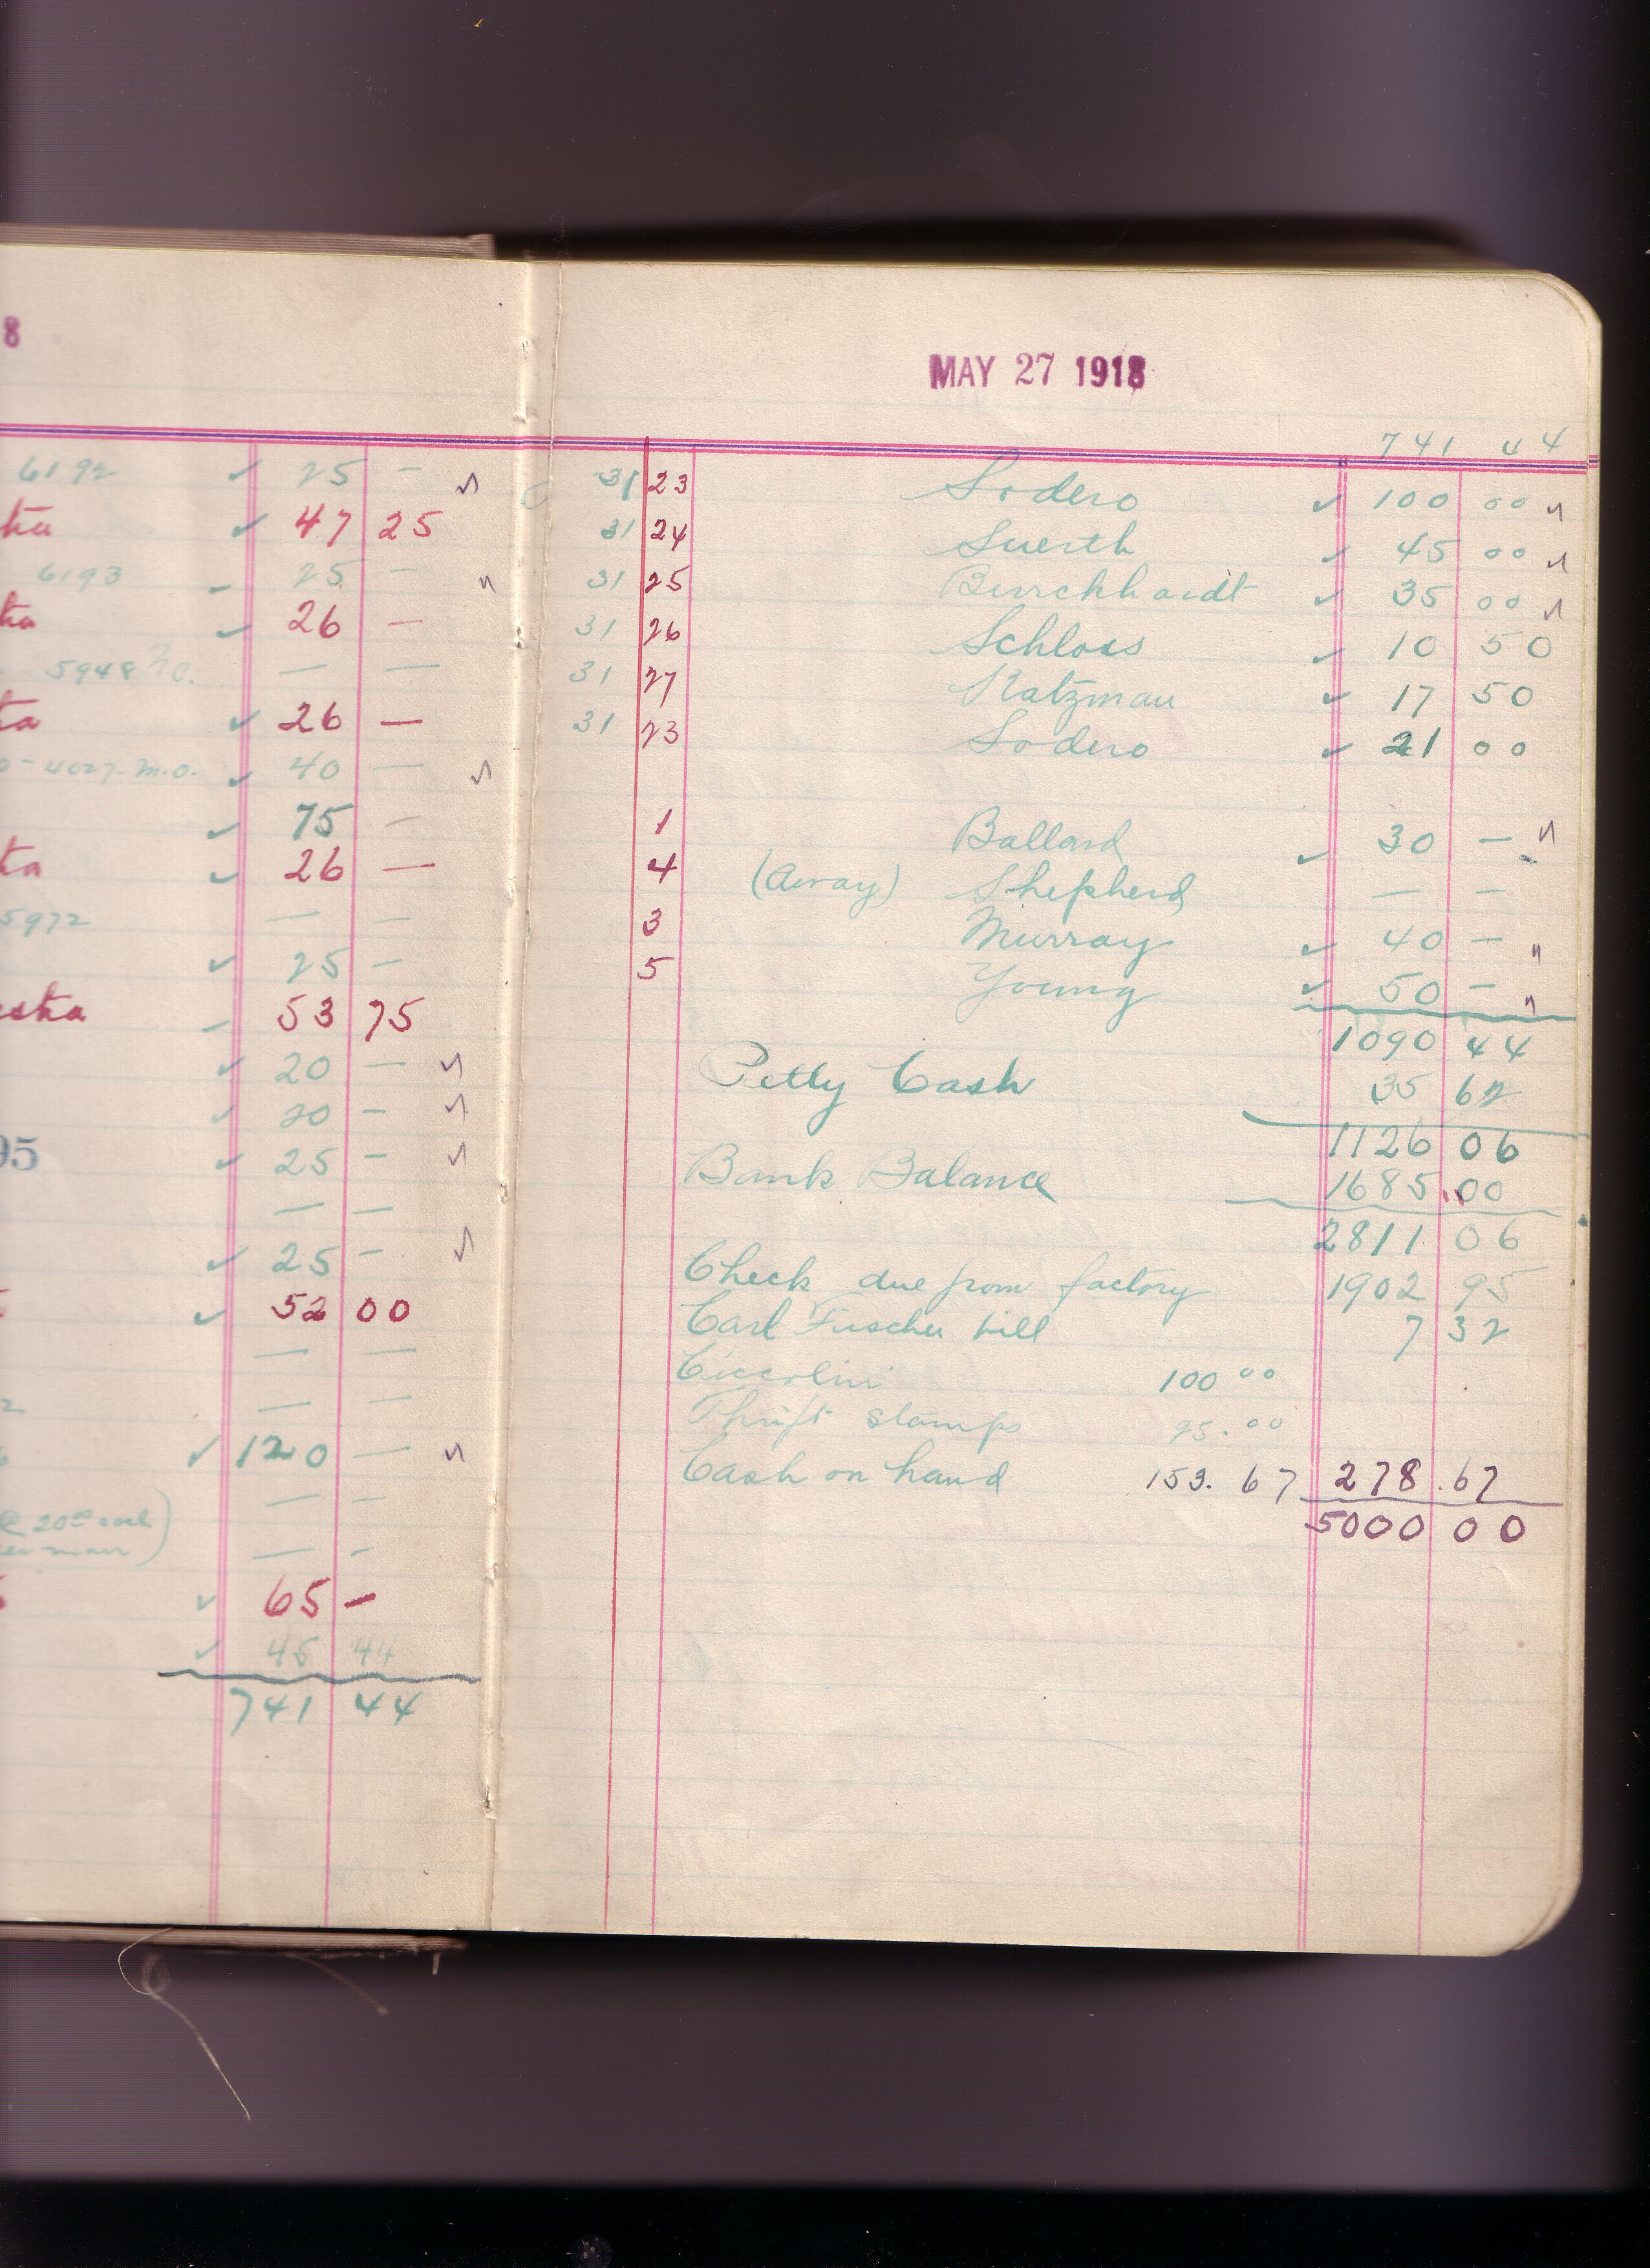 8
6192 ✓ 25 —
ta ✓ 47 25
6193 - 25 — "
ta ✓ 26 —
5948 N.C. — —
ta ✓ 26 —
4027-M.O. ✓ 40 —
✓ 75 —
ta ✓ 26 —
5972 — —
✓ 25 —
esta - 53 75
✓ 20 —
✓ 20 —
95 ✓ 25 —
— —
✓ 25 —
✓ 52 00
— —
2 — —
✓ 120 — "
@ 20 00 each) — —
man) — -
✓ 65 —
✓ 45 44
741 44
MAY 27 1918
741 44
31 23 Sodero ✓ 100 00
31 24 Suerth ✓ 45 00
31 25 Burckhardt ✓ 35 00
31 26 Schloss ✓ 10 50
31 27 Katzman ✓ 17 50
31 23 Sodero ✓ 21 00
1 Ballard ✓ 30 —
4 (Away) Shepherd — —
3 Murray ✓ 40 — "
5 Young ✓ 50 — "
1090 44
Petty Cash 35 62
1126 06
Bank Balance 1685.00
2811 06
Check due from factory 1902 95
Carl Fischer bill 7 32
Ciccolini 100 00
Thrift stamps 25.00
Cash on hand 153.67 278.67
5000 00